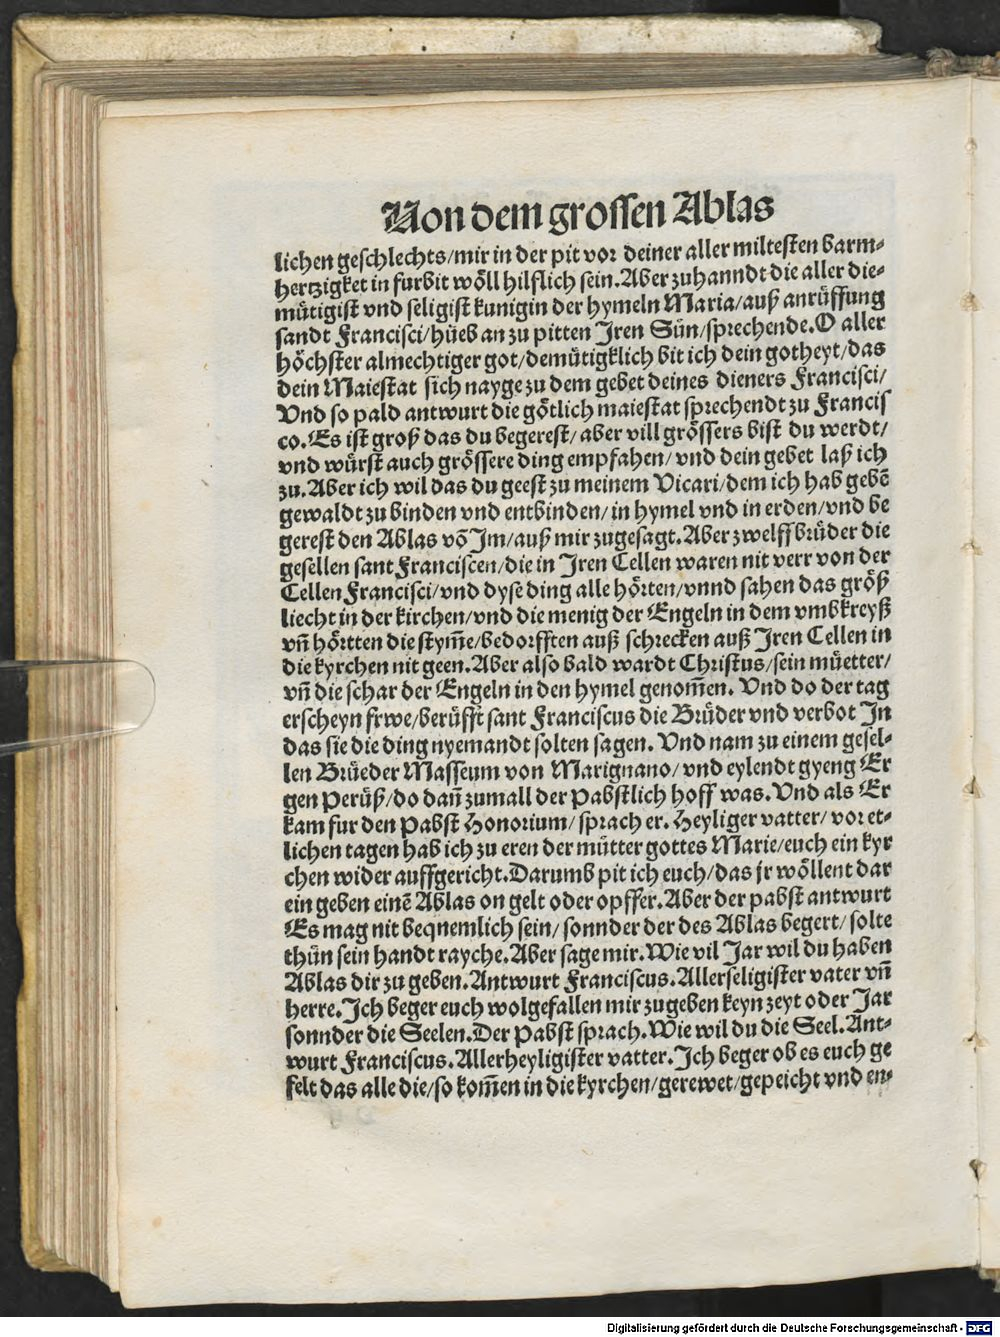 Von dem grossen Ablas
lichen geschlechts/mir in der pit vor deiner aller miltesten barm-
hertzigket in furbit wöll hilflich sein. Aber zuhanndt die aller die-
mütigist vnd seligist kunigin der hymeln Maria/auß anrüffung
sandt Francisci/hüeb an zu pitten Jren Sün/sprechende. O aller
höchster almechtiger got/demütigklich bit ich dein gotheyt/das
dein Maiestat sich nayge zu dem gebet deines dieners Francisci/
Vnd so pald antwurt die götlich maiestat sprechendt zu Francis
co. Es ist groß das du begerest/aber vill grössers bist du werdt/
vnd würst auch grössere ding empfahen/vnd dein gebet laß ich
zu. Aber ich wil das du geest zu meinem Vicari/dem ich hab gebē
gewaldt zu binden vnd entbinden/in hymel vnd in erden/vnd be
gerest den Ablas vō Jm/auß mir zugesagt. Aber zwelff brüder die
gesellen sant Franciscen/die in Jren Cellen waren nit verr von der
Cellen Francisci/vnd dyse ding alle hörten/vnnd sahen das größ
liecht in der kirchen/vnd die menig der Engeln in dem vmbkreyß
vñ hörtten die stym̃e/bedorfften auß schrecken auß Jren Cellen in
die kyrchen nit geen. Aber also bald wardt Christus/sein müetter/
vñ die schar der Engeln in den hymel genom̃en. Vnd do der tag
erscheyn frwe/berüfft sant Franciscus die Brüder vnd verbot Jn
das sie die ding nyemandt solten sagen. Vnd nam zu einem gesel-
len Brüeder Masseum von Marignano/vnd eylendt gyeng Er
gen Perüß/do dañ zumall der Pabstlich hoff was. Vnd als Er
kam fur den Pabst Honorium/sprach er. Heyliger vatter/vor et-
lichen tagen hab ich zu eren der mütter gottes Marie/euch ein kyr
chen wider auffgericht. Darumb pit ich euch/das jr wöllent dar
ein geben einē Ablas on gelt oder opffer. Aber der pabst antwurt
Es mag nit beqnemlich sein/sonnder der des Ablas begert/solte
thün sein handt rayche. Aber sage mir. Wie vil Jar wil du haben
Ablas dir zu geben. Antwurt Franciscus. Allerseligister vater vñ
herre. Jch beger euch wolgefallen mir zugeben keyn zeyt oder Jar
sonnder die Seelen. Der Pabst sprach. Wie wil du die Seel. Ant-
wurt Franciscus. Allerheyligister vatter. Jch beger ob es euch ge
felt das alle die/so kom̃en in die kyrchen/gerewet/gepeicht vnd en-
Digitalisierung gefördert durch die Deutsche Forschungsgemeinschaft - DFG